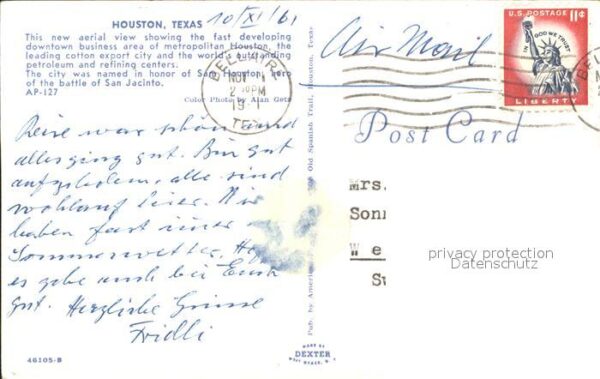 HOUSTON, TEXAS
10/XI/61
This new aerial view showing the fast developing
downtown business area of metropolitan Houston, the
leading cotton export city and the world's outstanding
petroleum and refining centers.
The city was named in honor of Sam Houston, hero
of the battle of San Jacinto.
AP-127
Color Photo by Alan Getz
BELLAIRE
NOV
2 PM
19
TEX
Reise war schön und
alles ging gut. Bin gut
alle sind
wohlauf hier. Wir
haben fast
Sommerwetter.
es gehe auch bei Euch
gut. Herzliche Grüsse
Fridli
46105-B
Pub. by American
Old Spanish Trail, Houston, Texas
MADE BY
DEXTER
WEST NYACK, N.Y.
Air Mail
U.S. POSTAGE 11¢
IN GOD WE TRUST
LIBERTY
Post Card
Mrs.
Sonn
We
privacy protection
Datenschutz